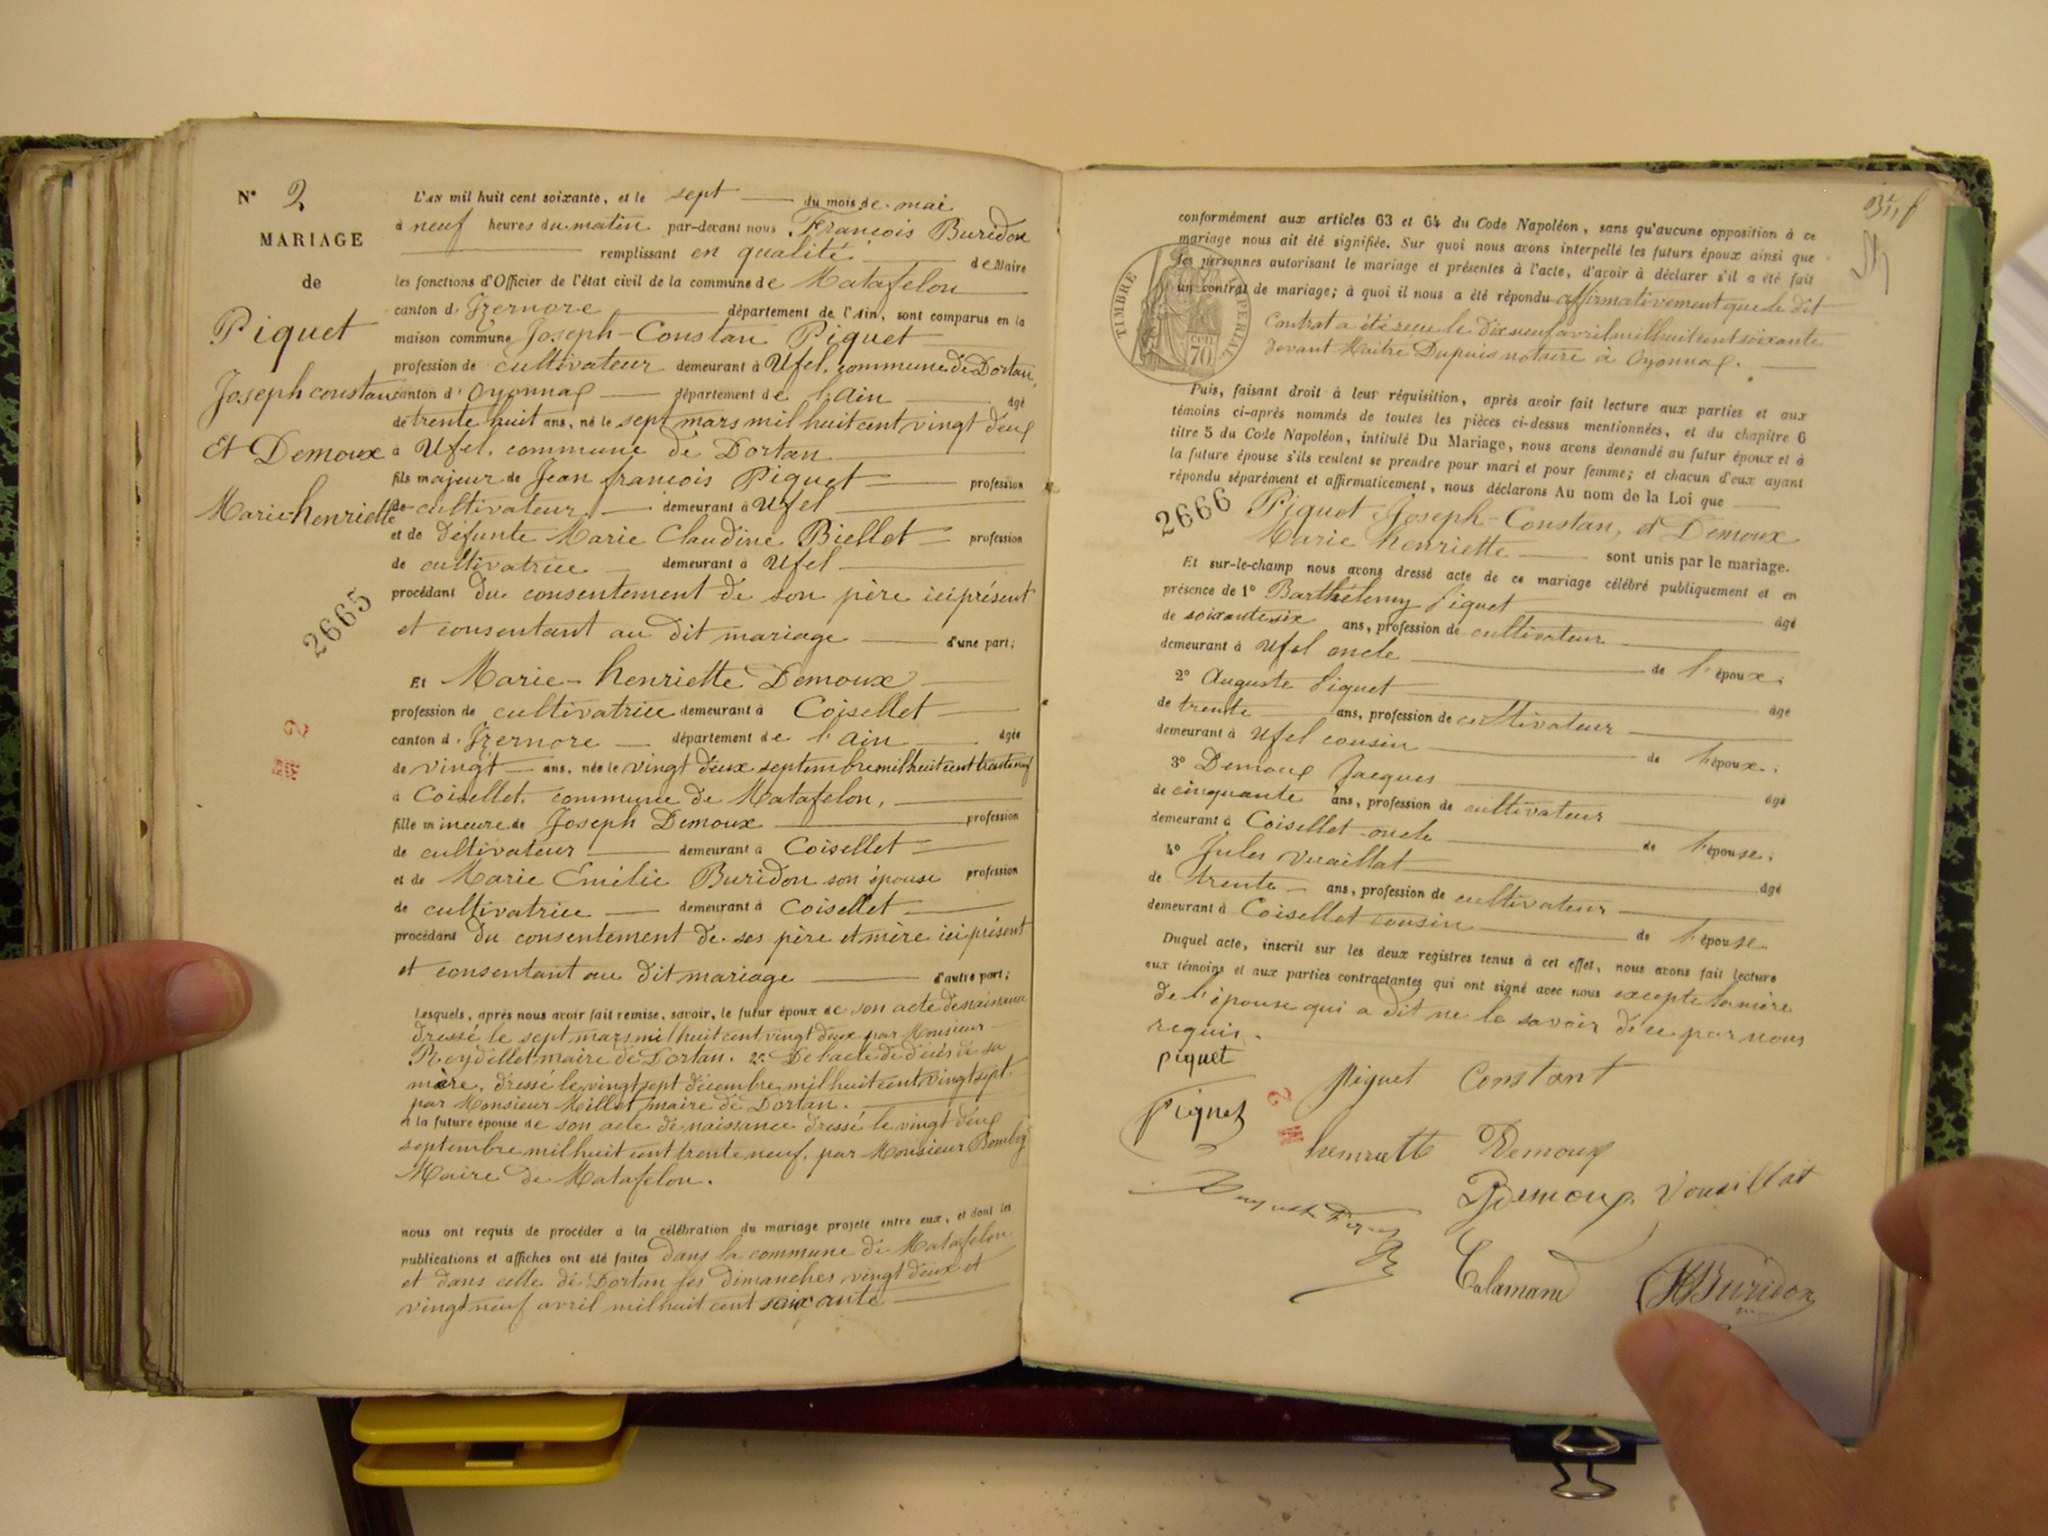 N° 2
MARIAGE
de
Piquet
Joseph constan
Et Demoux
Marie-henriette
2665
L'AN mil huit cent soixante, et le sept du mois de mai
à neuf heures du matin par-devant nous François Buridon
remplissant en qualité de Maire
les fonctions d'Officier de l'état civil de la commune de Matafelon
canton d'Izernore département de l'Ain, sont comparus en la
maison commune Joseph-Constan Piquet
profession de cultivateur demeurant à Uffel, commune de Dortan,
canton d'Oyonnax département de l'Ain âgé
de trente huit ans, né le sept mars mil huit cent vingt deux
à Uffel, commune de Dortan
fils majeur de Jean françois Piquet profession
de cultivateur demeurant à Uffel
et de défunte Marie Claudine Biellet profession
de cultivatrice demeurant à Uffel
procédant du consentement de son père ici présent
et consentant au dit mariage d'une part;
Et Marie-henriette Demoux
profession de cultivatrice demeurant à Coisellet
canton d'Izernore département de l'Ain âgée
de vingt ans, née le vingt deux septembre mil huit cent trente neuf
à Coisellet, commune de Matafelon,
fille mineure de Joseph Demoux profession
de cultivateur demeurant à Coisellet
et de Marie Emilie Buridon son épouse profession
de cultivatrice demeurant à Coisellet
procédant du consentement de ses père et mère ici présent
et consentant au dit mariage d'autre part;
Lesquels, après nous avoir fait remise, savoir, le futur époux de son acte de naissance
dressé le sept mars mil huit cent vingt deux par Monsieur
Reydellet maire de Dortan. 2° De l'acte de décès de sa
mère, dressé le vingt sept décembre mil huit cent vingt sept.
par Monsieur Millet maire de Dortan.
et la future épouse de son acte de naissance dressé le vingt deux
septembre mil huit cent trente neuf, par Monsieur
Maire de Matafelon.
nous ont requis de procéder à la célébration du mariage projeté entre eux, et dont les
publications et affiches ont été faites dans la commune de Matafelon
et dans celle de Dortan les dimanches vingt deux et
vingt neuf avril mil huit cent soixante
conformément aux articles 63 et 64 du Code Napoléon, sans qu'aucune opposition à ce
mariage nous ait été signifiée. Sur quoi nous avons interpellé les futurs époux ainsi que
les personnes autorisant le mariage et présentes à l'acte, d'avoir à déclarer s'il a été fait
un contrat de mariage; à quoi il nous a été répondu affirmativement que le dit
Contrat a été reçu le dix neuf avril mil huit cent soixante
devant Maitre Dupuis notaire à Oyonnax.
TIMBRE IMPÉRIAL
70
Puis, faisant droit à leur réquisition, après avoir fait lecture aux parties et aux
témoins ci-après nommés de toutes les pièces ci-dessus mentionnées, et du chapitre 6
titre 5 du Code Napoléon, intitulé Du Mariage, nous avons demandé au futur époux et à
la future épouse s'ils veulent se prendre pour mari et pour femme; et chacun d'eux ayant
répondu séparément et affirmativement, nous déclarons Au nom de la Loi que
2666
Piquet Joseph-Constan, et Demoux
Marie henriette sont unis par le mariage.
Et sur-le-champ nous avons dressé acte de ce mariage célébré publiquement et en
présence de 1° Barthélemy Piquet âgé
de soixante six ans, profession de cultivateur
demeurant à Uffel oncle de l'époux.
2° Auguste Piquet âgé
de trente ans, profession de cultivateur
demeurant à Uffel cousin de l'époux.
3° Demoux Jacques âgé
de cinquante ans, profession de cultivateur
demeurant à Coisellet oncle de l'épouse.
4° Jules Vuaillat âgé
de trente ans, profession de cultivateur
demeurant à Coisellet cousin de l'épouse
Duquel acte, inscrit sur les deux registres tenus à cet effet, nous avons fait lecture
aux témoins et aux parties contractantes qui ont signé avec nous excepté la mère
de l'épouse qui a dit ne le savoir de ce par nous
requis.
piquet
piguet Constant
Piquet
henriette Demoux
Demoux Vouaillat
Calamand
Buridon